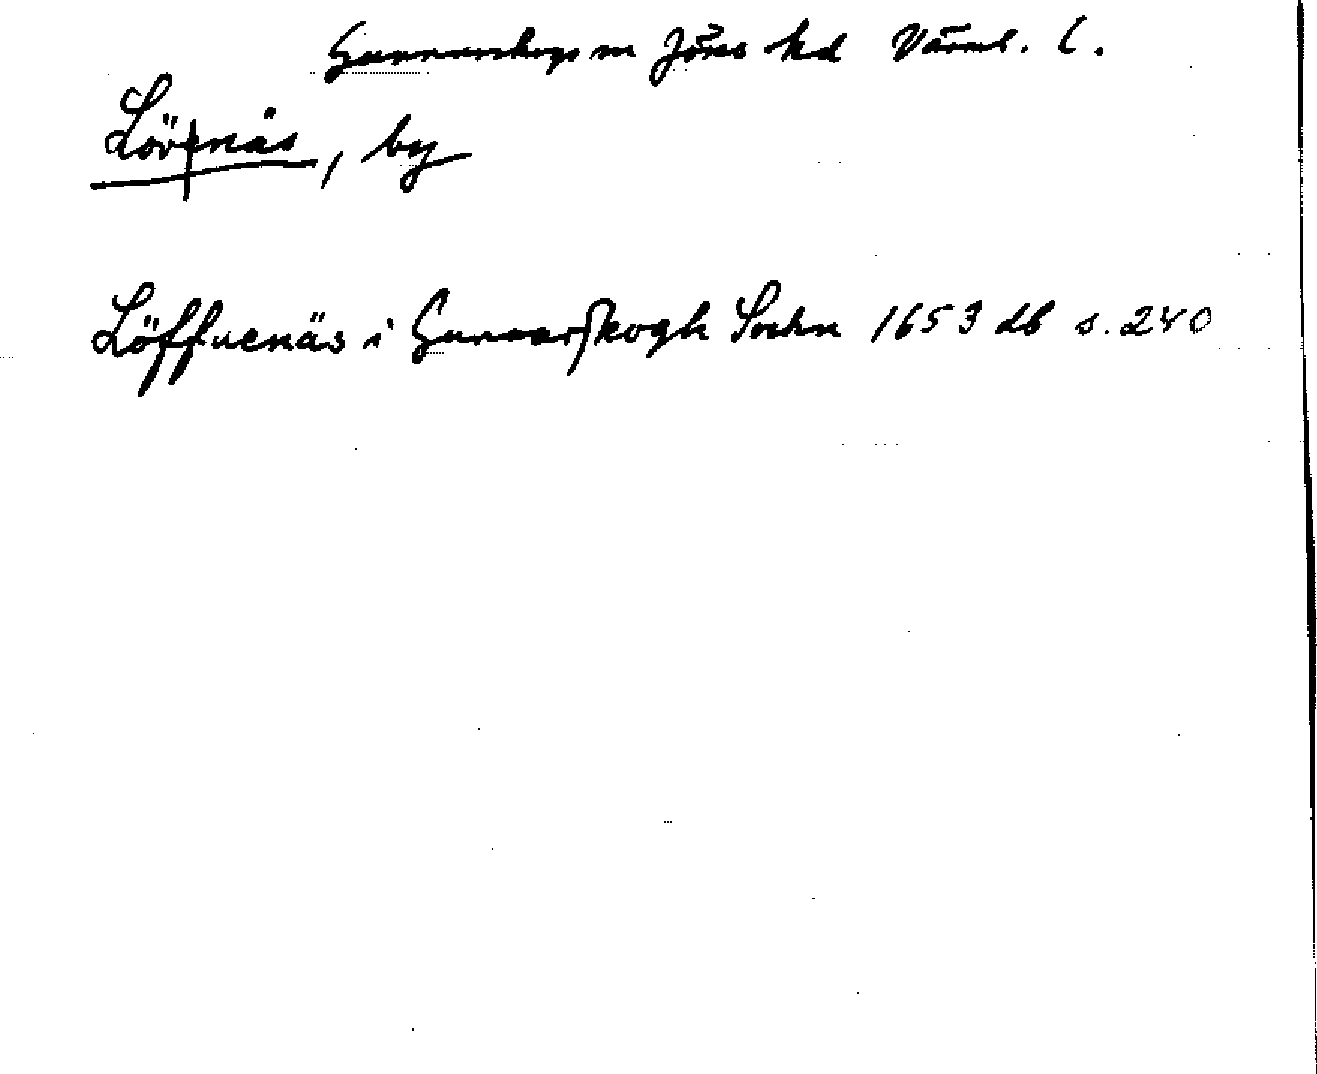 Gunnarskogs sn Jösse hd Värml. l.
Lövnäs, by
Löffuenäs i Gunnarskogh Sochn 1653 db s. 240